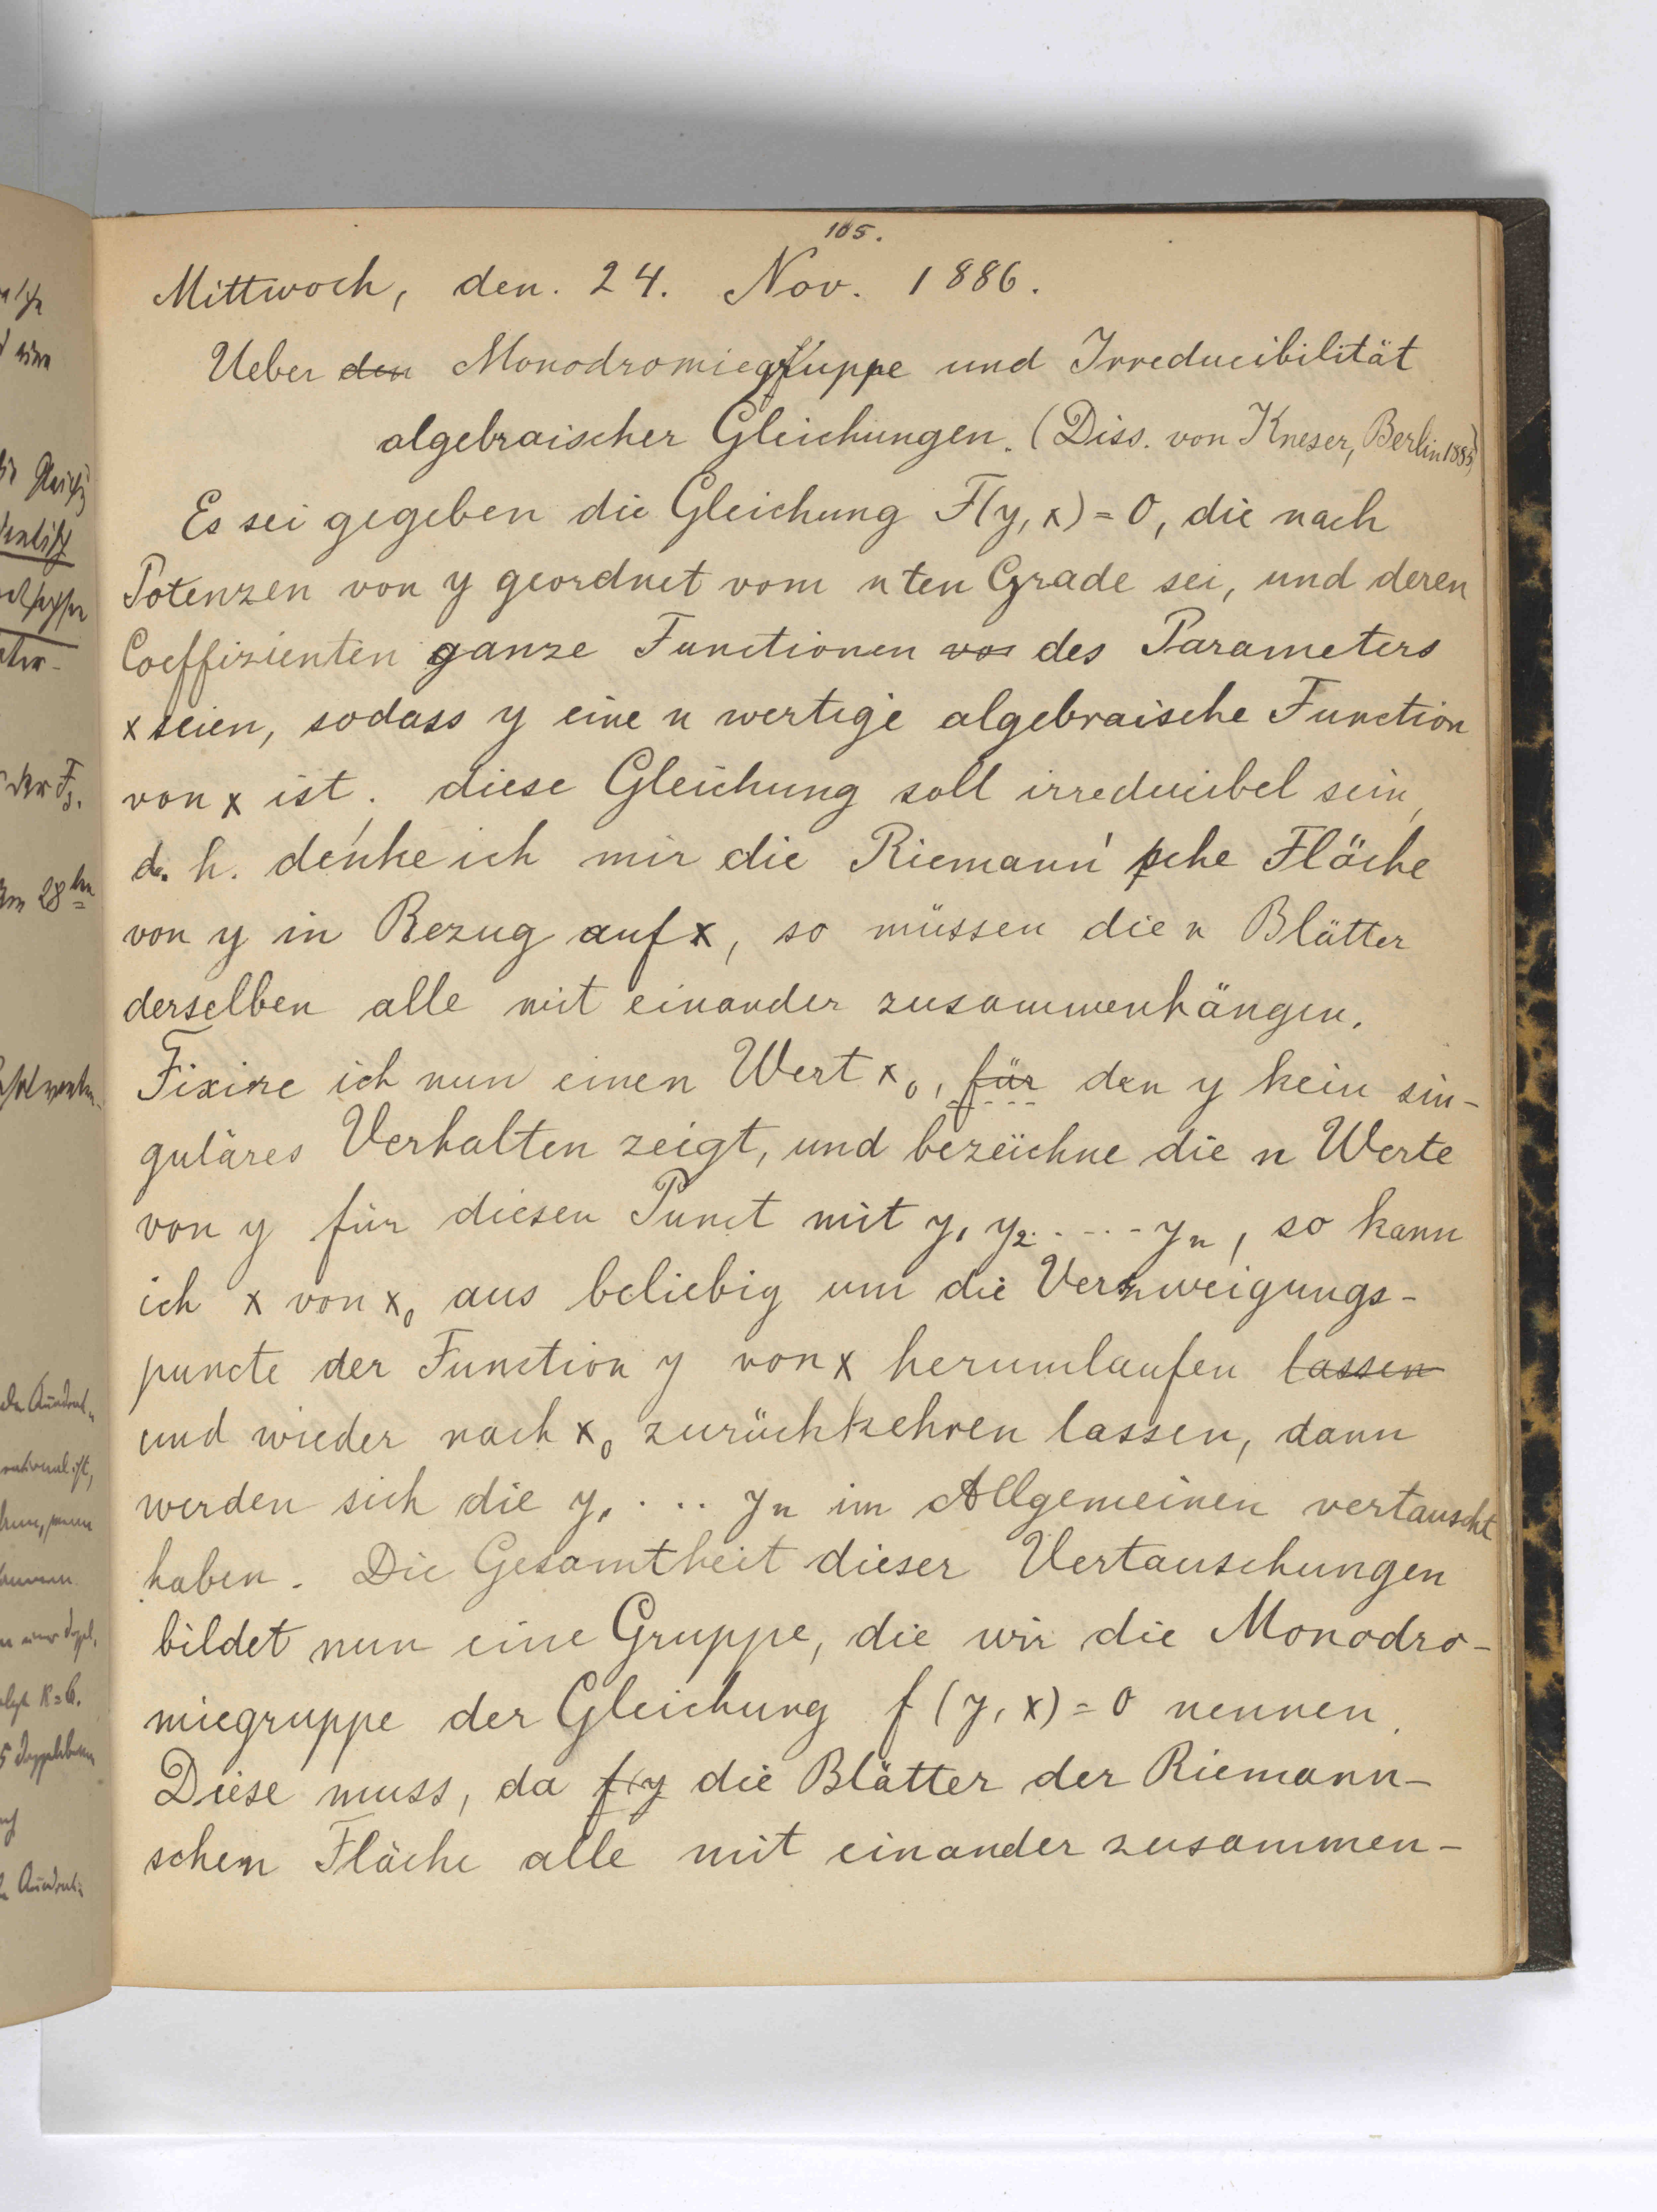 105.
Mittwoch, den. 24. Nov. 1886.
Ueber den Monodromiegruppe und Irreducibilität
algebraischer Gleichungen. (Diss. von Kneser, Berlin
Es sei gegeben die Gleichung F(y, x) = 0, die nach
Potenzen von y geordnet vom n ten Grade sei, und deren
Coeffizienten ganze Functionen vo des Parameters
x seien, sodass y eine n wertige algebraische Function
von x ist. diese Gleichung soll irreducibel sein,
d. h. denke ich mir die Riemann'sche Fläche
von y in Bezug auf x, so müssen die n Blätter
derselben alle mit einander zusammenhängen.
Fixire ich nun einen Wert x₀, für den y kein sin-
guläres Verhalten zeigt, und bezeichne die n Werte
von y für diesen Punct mit y₁ y₂ . . . . yₙ, so kann
ich x von x₀ aus beliebig um die Verzweigungs-
puncte der Function y von x herumlaufen lassen
und wieder nach x₀ zurückkehren lassen, dann
werden sich die y₁ . . . yₙ im Allgemeinen vertauscht
haben. Die Gesamtheit dieser Vertauschungen
bildet nun eine Gruppe, die wir die Monodro-
miegruppe der Gleichung f (y, x) = 0 nennen.
Diese muss, da f(y die Blätter der Riemann-
schen Fläche alle mit einander zusammen-